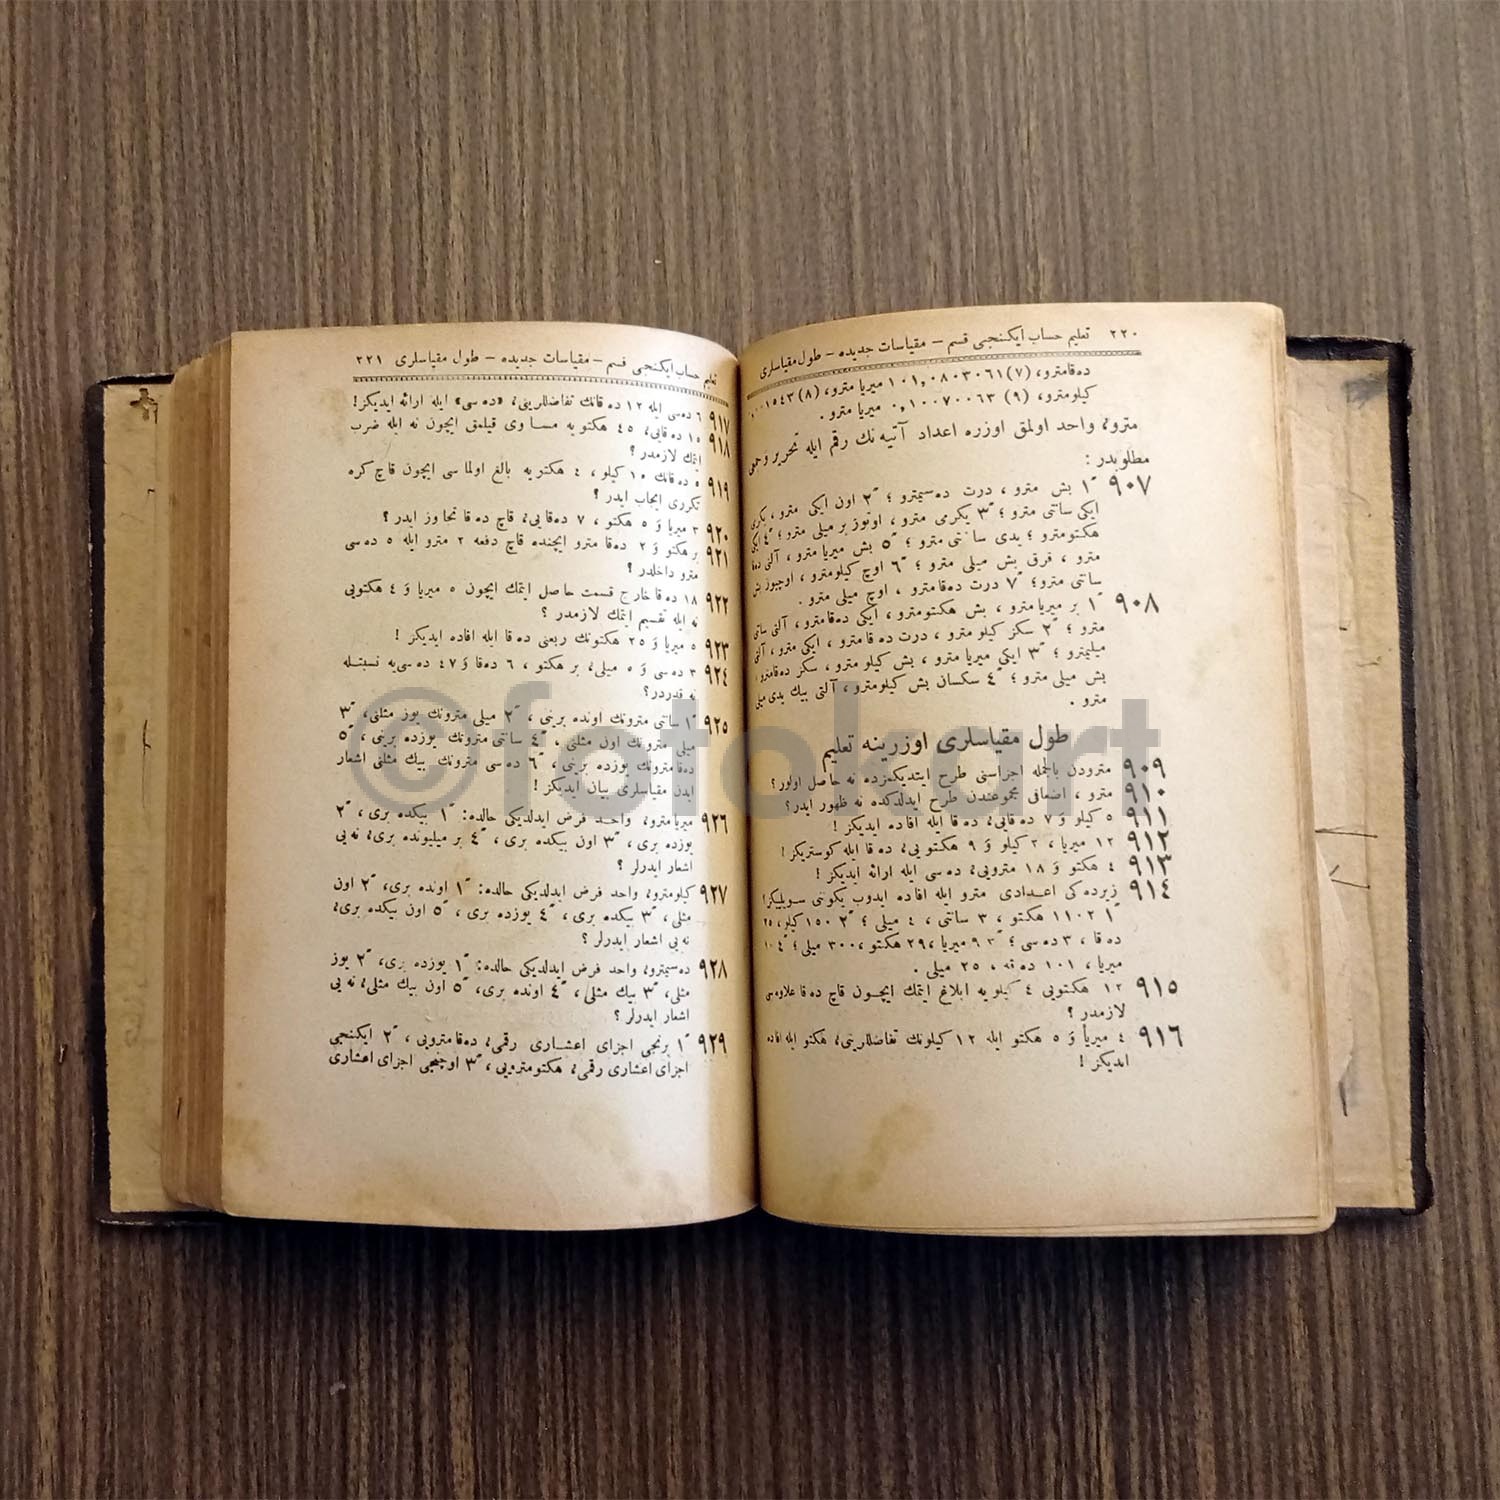 ٢٢٠ تعليم حساب ايكنجى قسم — مقياسات جديده — طول مقياسلرى
ده‌قامترو، (٧) ١٠١,٠٨٠٣٠٦١ ميريا مترو، (٨)
كيلومترو، (٩) ٠,١٠٠٧٠٠٦٣ ميريا مترو.
مترو، واحد اولمق اوزره اعداد آتيه نك رقم ايله تحرير وجمعى
مطلوبدر:
٩٠٧ ١ً بش مترو، درت ده‌سيمترو؛ ٢ً اون ايكى مترو،
ايكى سانتى مترو؛ ٣ً يكرمى مترو، اوتوز بر ميلى مترو؛ ٤ً ايكى
هكتومترو؛ يدى سانتى مترو؛ ٥ً بش ميريا مترو، آلتى ده‌قا
مترو، قرق بش ميلى مترو؛ ٦ً اوچ كيلومترو، اوچيوز بش
سانتى مترو؛ ٧ً درت ده‌قامترو، اوچ ميلى مترو.
٩٠٨ ١ً بر ميريا مترو، بش هكتومترو، ايكى ده‌قامترو، آلتى سانتى
مترو؛ ٢ً سكز كيلو مترو، درت ده‌قا مترو، ايكى مترو، آلتى
ميليمترو؛ ٣ً ايكى ميريا مترو، بش كيلو مترو، سكز ده‌قامترو،
بش ميلى مترو؛ ٤ً سكسان بش كيلومترو، آلتى بيك يدى ميلى
مترو.
طول مقياسلرى اوزرينه تعليم
٩٠٩ مترودن بالجمله اجزاسنى طرح ايتديكمزده نه حاصل اولور؟
٩١٠ مترو، اضعافى مجموعندن طرح ايدلدكده نه ظهور ايدر؟
٩١١ ٥ كيلو وَ ٧ ده‌قايى، ده‌قا ايله افاده ايديكز!
٩١٢ ١٢ ميريا، ٢ كيلو وَ ٩ هكتويى، ده‌قا ايله كوستريكز!
٩١٣ ٤ هكتو وَ ١٨ مترويى، ده‌سى ايله ارائه ايديكز!
٩١٤ زيرده‌كى اعدادى مترو ايله افاده ايدوب يكوننى سويليكز!
١ً ١١٠٢ هكتو، ٣ سانتى، ٤ ميلى؛ ٢ً ١٥٠ كيلو، ٢٥
ده‌قا، ٣ ده‌سى؛ ٣ً ٩ ميريا، ٢٩ هكتو، ٣٠٠ ميلى؛ ٤ً ١٠
ميريا، ١٠١ ده‌قه، ٢٥ ميلى.
٩١٥ ١٢ هكتويى ٤ كيلويه ابلاغ ايتمك ايچون قاچ ده‌قا علاوه‌سى
لازمدر؟
٩١٦ ٤ ميريا وَ ٥ هكتو ايله ١٢ كيلونك تفاضللرينى، هكتو ايله افاده
ايديكز!
تعليم حساب ايكنجى قسم — مقياسات جديده — طول مقياسلرى ٢٢١
٩١٧ ٦ ده‌سى ايله ١٢ ده‌قانك تفاضللرينى، «ده‌سى» ايله ارائه ايديكز!
٩١٨ ١٥ ده‌قايى، ٤٥ هكتويه مساوى قيلمق ايچون نه ايله ضرب
ايتمك لازمدر؟
٩١٩ ٥ ده‌قانك ١٠ كيلو، ٤ هكتويه بالغ اولماسى ايچون قاچ كره
تكررى ايجاب ايدر؟
٩٢٠ ٣ ميريا وَ ٥ هكتو، ٧ ده‌قايى، قاچ ده‌قا تجاوز ايدر؟
٩٢١ بر هكتو وَ ٢ ده‌قا مترو ايچنده قاچ دفعه ٢ مترو ايله ٥ ده‌سى
مترو داخلدر؟
٩٢٢ ١٨ ده‌قا خارج قسمت حاصل ايتمك ايچون ٥ ميريا وَ ٤ هكتويى
نه ايله تقسيم ايتمك لازمدر؟
٩٢٣ ٥ ميريا وَ ٢٥ هكتونك ربعنى ده‌قا ايله افاده ايديكز!
٩٢٤ ٣ ده‌سى وَ ٥ ميلى، بر هكتو، ٦ ده‌قا وَ ٤٧ ده‌سى‌يه نسبتله
نه قدردر؟
٩٢٥ ١ً سانتى مترونك اونده برينى، ٢ً ميلى مترونك يوز مثلنى، ٣ً
ميلى مترونك اون مثلنى، ٤ً سانتى مترونك يوزده برينى، ٥ً
ده‌قامترونك يوزده برينى، ٦ً ده‌سى مترونك بيك مثلنى اشعار
ايدن مقياسلرى بيان ايديكز!
٩٢٦ ميريامترو، واحد فرض ايدلديكى حالده: ١ً بيكده برى، ٢ً
يوزده برى، ٣ً اون بيكده برى، ٤ً بر ميليونده برى، نه يى
اشعار ايدرلر؟
٩٢٧ كيلومترو، واحد فرض ايدلديكى حالده: ١ً اونده برى، ٢ً اون
مثلى، ٣ً بيكده برى، ٤ً يوزده برى، ٥ً اون بيكده برى،
نه يى اشعار ايدرلر؟
٩٢٨ ده‌سيمترو، واحد فرض ايدلديكى حالده: ١ً يوزده برى، ٢ً يوز
مثلى، ٣ً بيك مثلى، ٤ً اونده برى، ٥ً اون بيك مثلى، نه يى
اشعار ايدرلر؟
٩٢٩ ١ً برنجى اجزاى اعشارى رقمى، ده‌قامترويى، ٢ً ايكنجى
اجزاى اعشارى رقمى، هكتومترويى، ٣ً اوچنجى اجزاى اعشارى
©fotokart